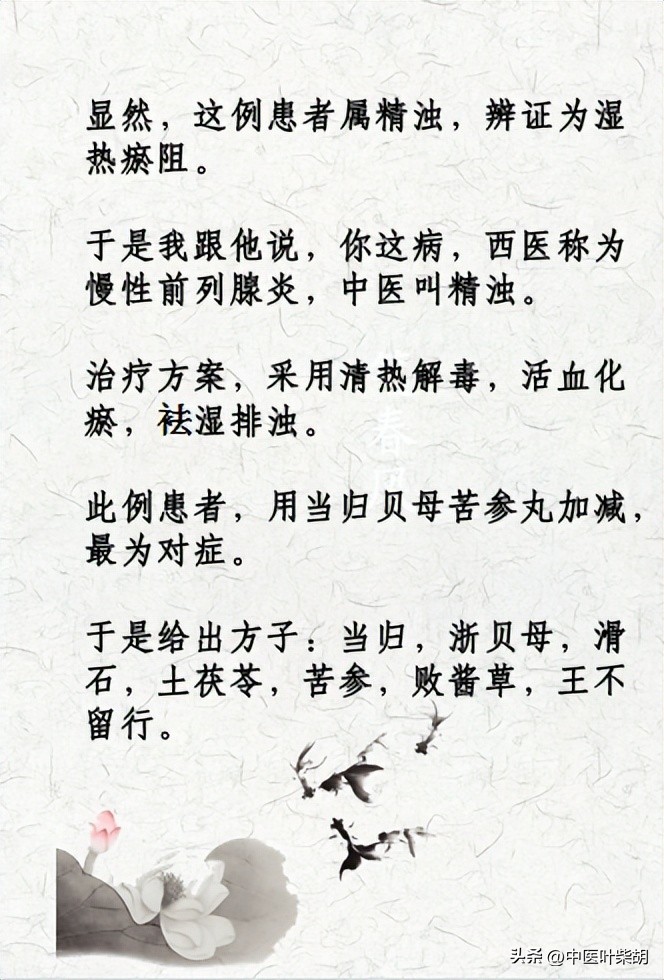 显然，这例患者属精浊，辨证为湿
热瘀阻。
于是我跟他说，你这病，西医称为
慢性前列腺炎，中医叫精浊。
治疗方案，采用清热解毒，活血化
瘀，祛湿排浊。
此例患者，用当归贝母苦参丸加减，
最为对症。
于是给出方子：当归，浙贝母，滑
石，土茯苓，苦参，败酱草，王不
留行。
头条 @中医叶柴胡